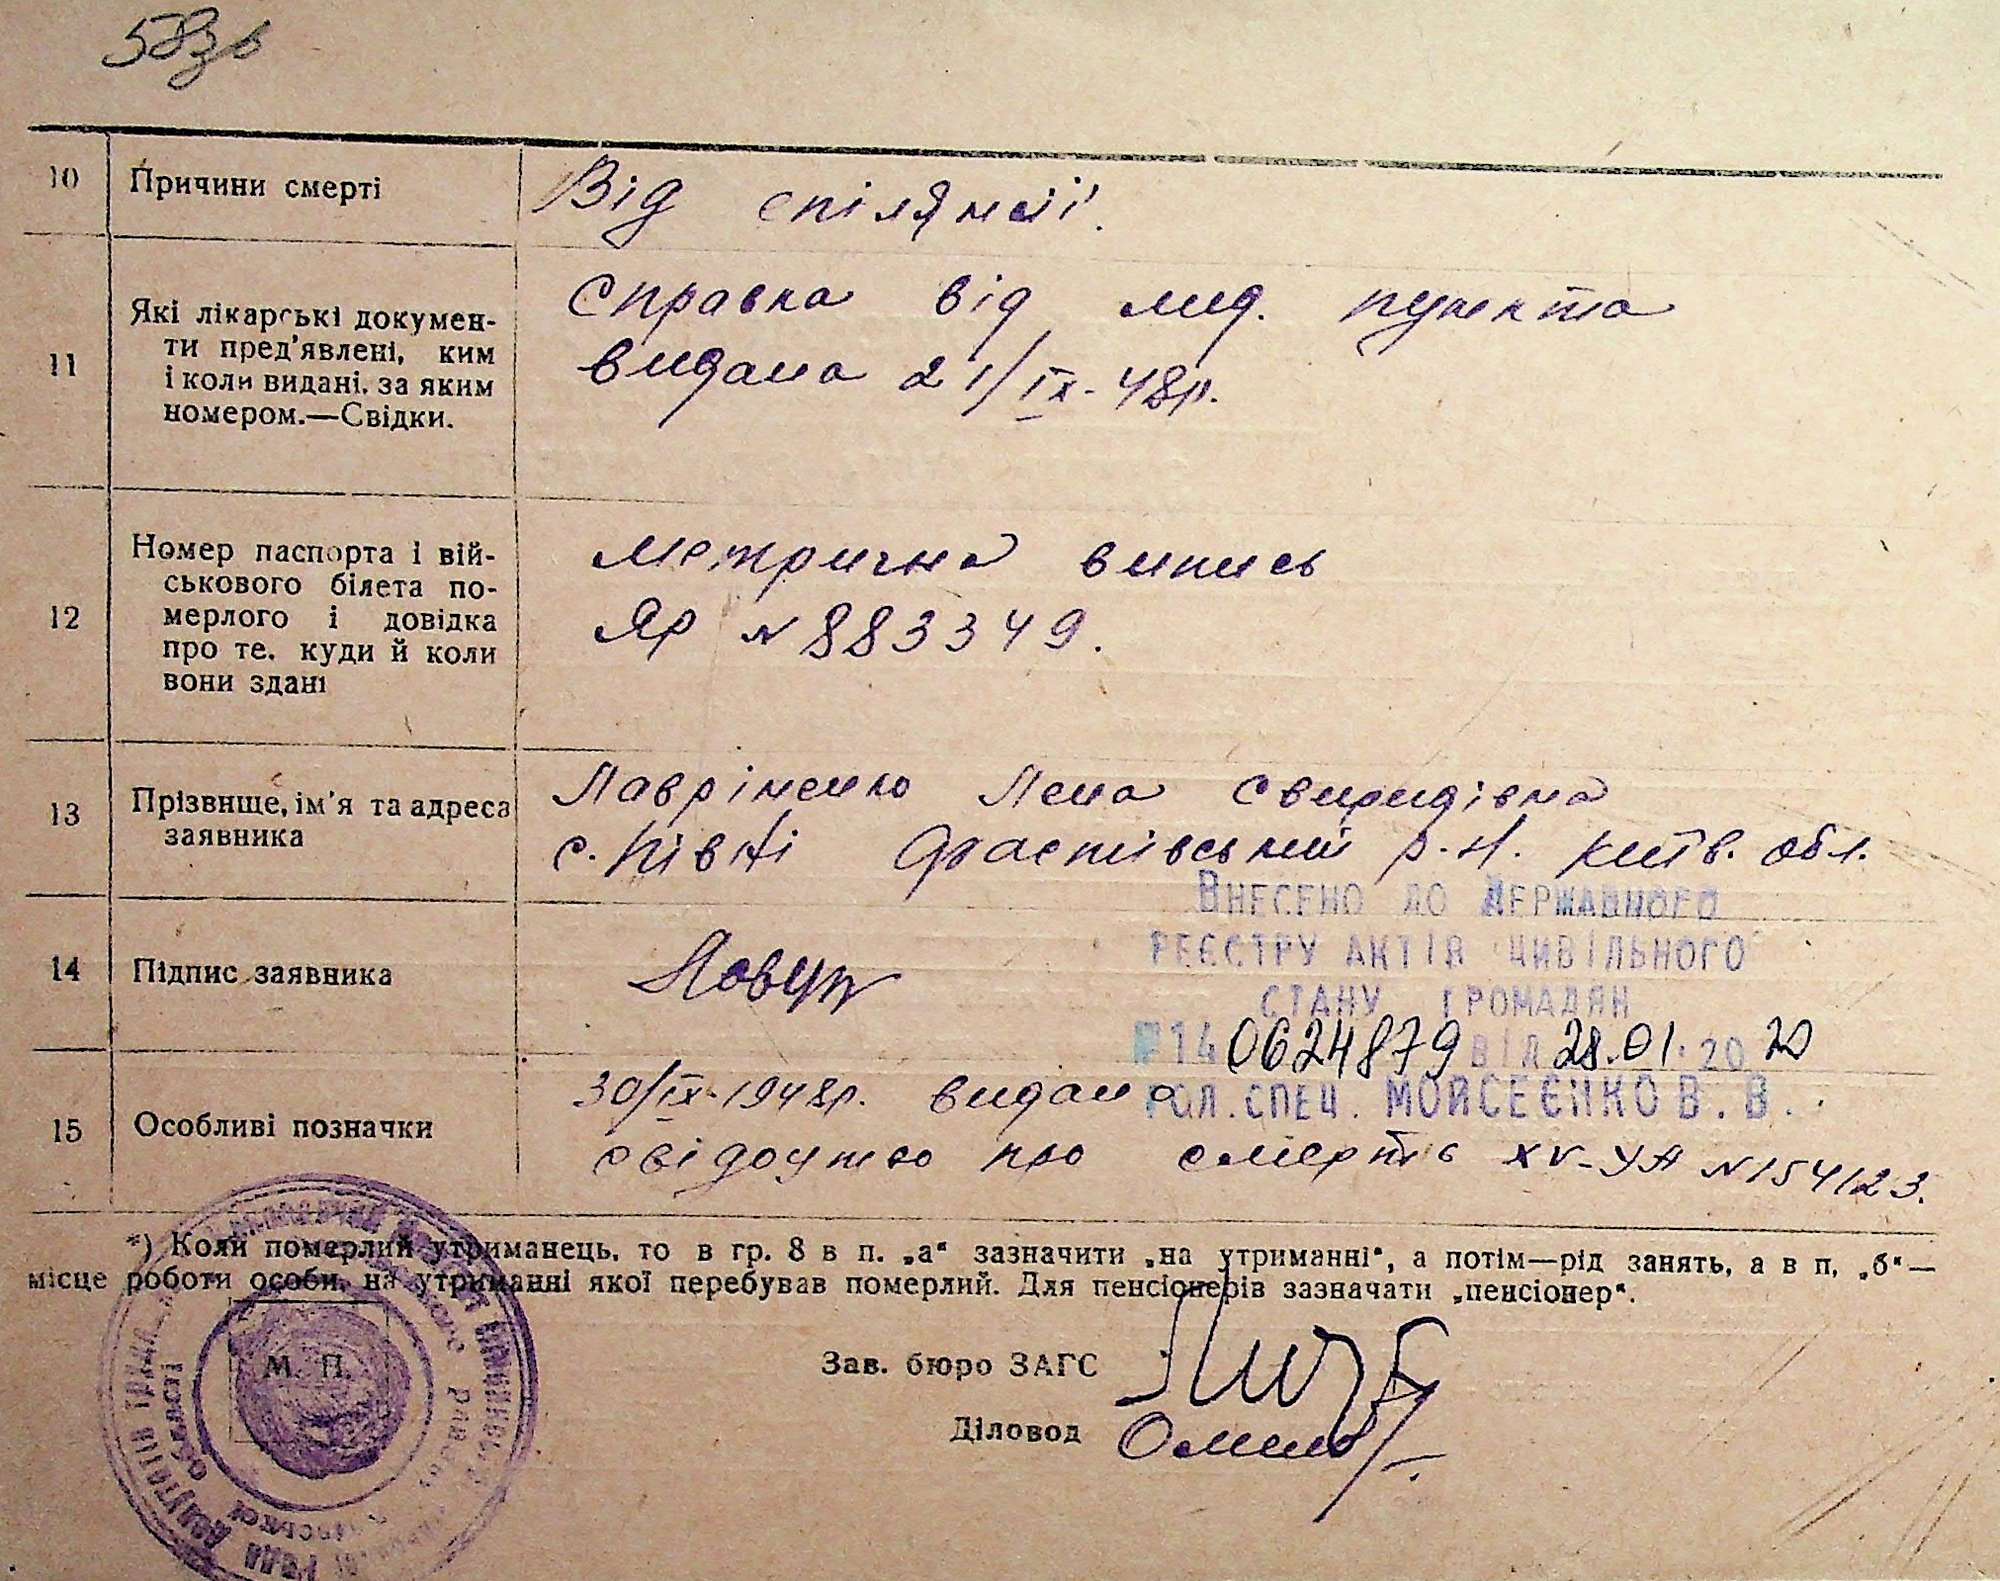 583в
10 Причини смерті
Від спілямсії.
11 Які лікарські докумен-
ти пред'явлені, ким
і коли видані, за яким
номером.—Свідки.
Справка від мед. пункта
видана 21/IX-48р.
12 Номер паспорта і вій-
ськового білета по-
мерлого і довідка
про те, куди й коли
вони здані
Метрична випись
ЯР N 883349.
13 Прізвище, ім'я та адреса
заявника
Лавріненко Лена Свиридівна
с. Півні Фастівський р-н. Київ. обл.
ВНЕСЕНО ДО ДЕРЖАВНОГО
РЕЄСТРУ АКТІВ ЦИВІЛЬНОГО
СТАНУ ГРОМАДЯН
№140624879 ВІД 28.01.2020
ГОЛ. СПЕЦ. МОЙСЕЄНКО В. В.
14 Підпис заявника
15 Особливі позначки
30/IX-1948р. видано
свідоцтво про смерть XV-УА N 154123.
*) Коли померлий утриманець, то в гр. 8 в п. „а“ зазначити „на утриманні“, а потім—рід занять, а в п. „б“—
місце роботи особи, на утриманні якої перебував померлий. Для пенсіонерів зазначати „пенсіонер“.
М. П.
Зав. бюро ЗАГС
Діловод